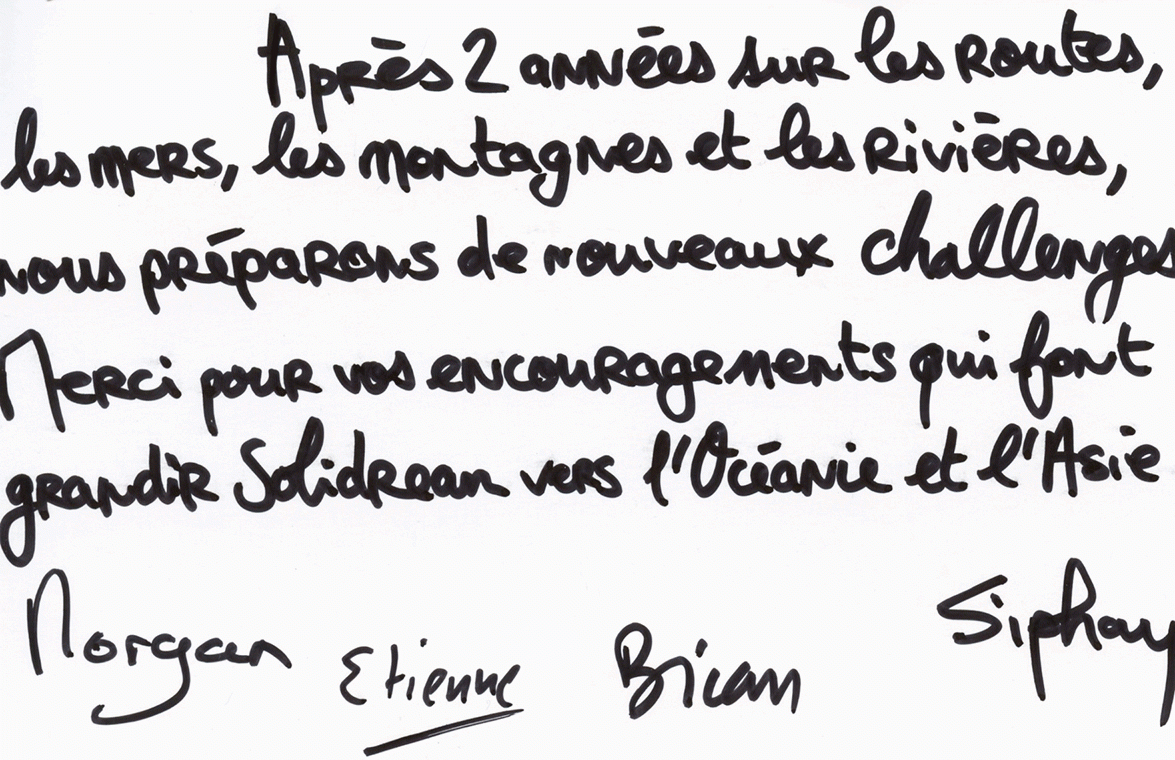 Après 2 années sur les routes,
les mers, les montagnes et les rivières,
nous préparons de nouveaux challenges
Merci pour vos encouragements qui font
grandir Solidream vers l'Océanie et l'Asie
Morgan Etienne Brian Siphay